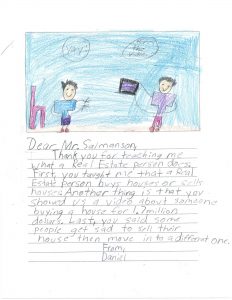 Dear Mr. Salmanson,
Thank you for teaching me
what a Real Estate person does.
First, you taught me that a Real
Estate person buys houses or sells
houses. Another thing is that you
showed us a video about someone
buying a house for 1.7 million
dollars. Last, you said some
people get sad to sell their
house then move in to a different one.
From,
Daniel